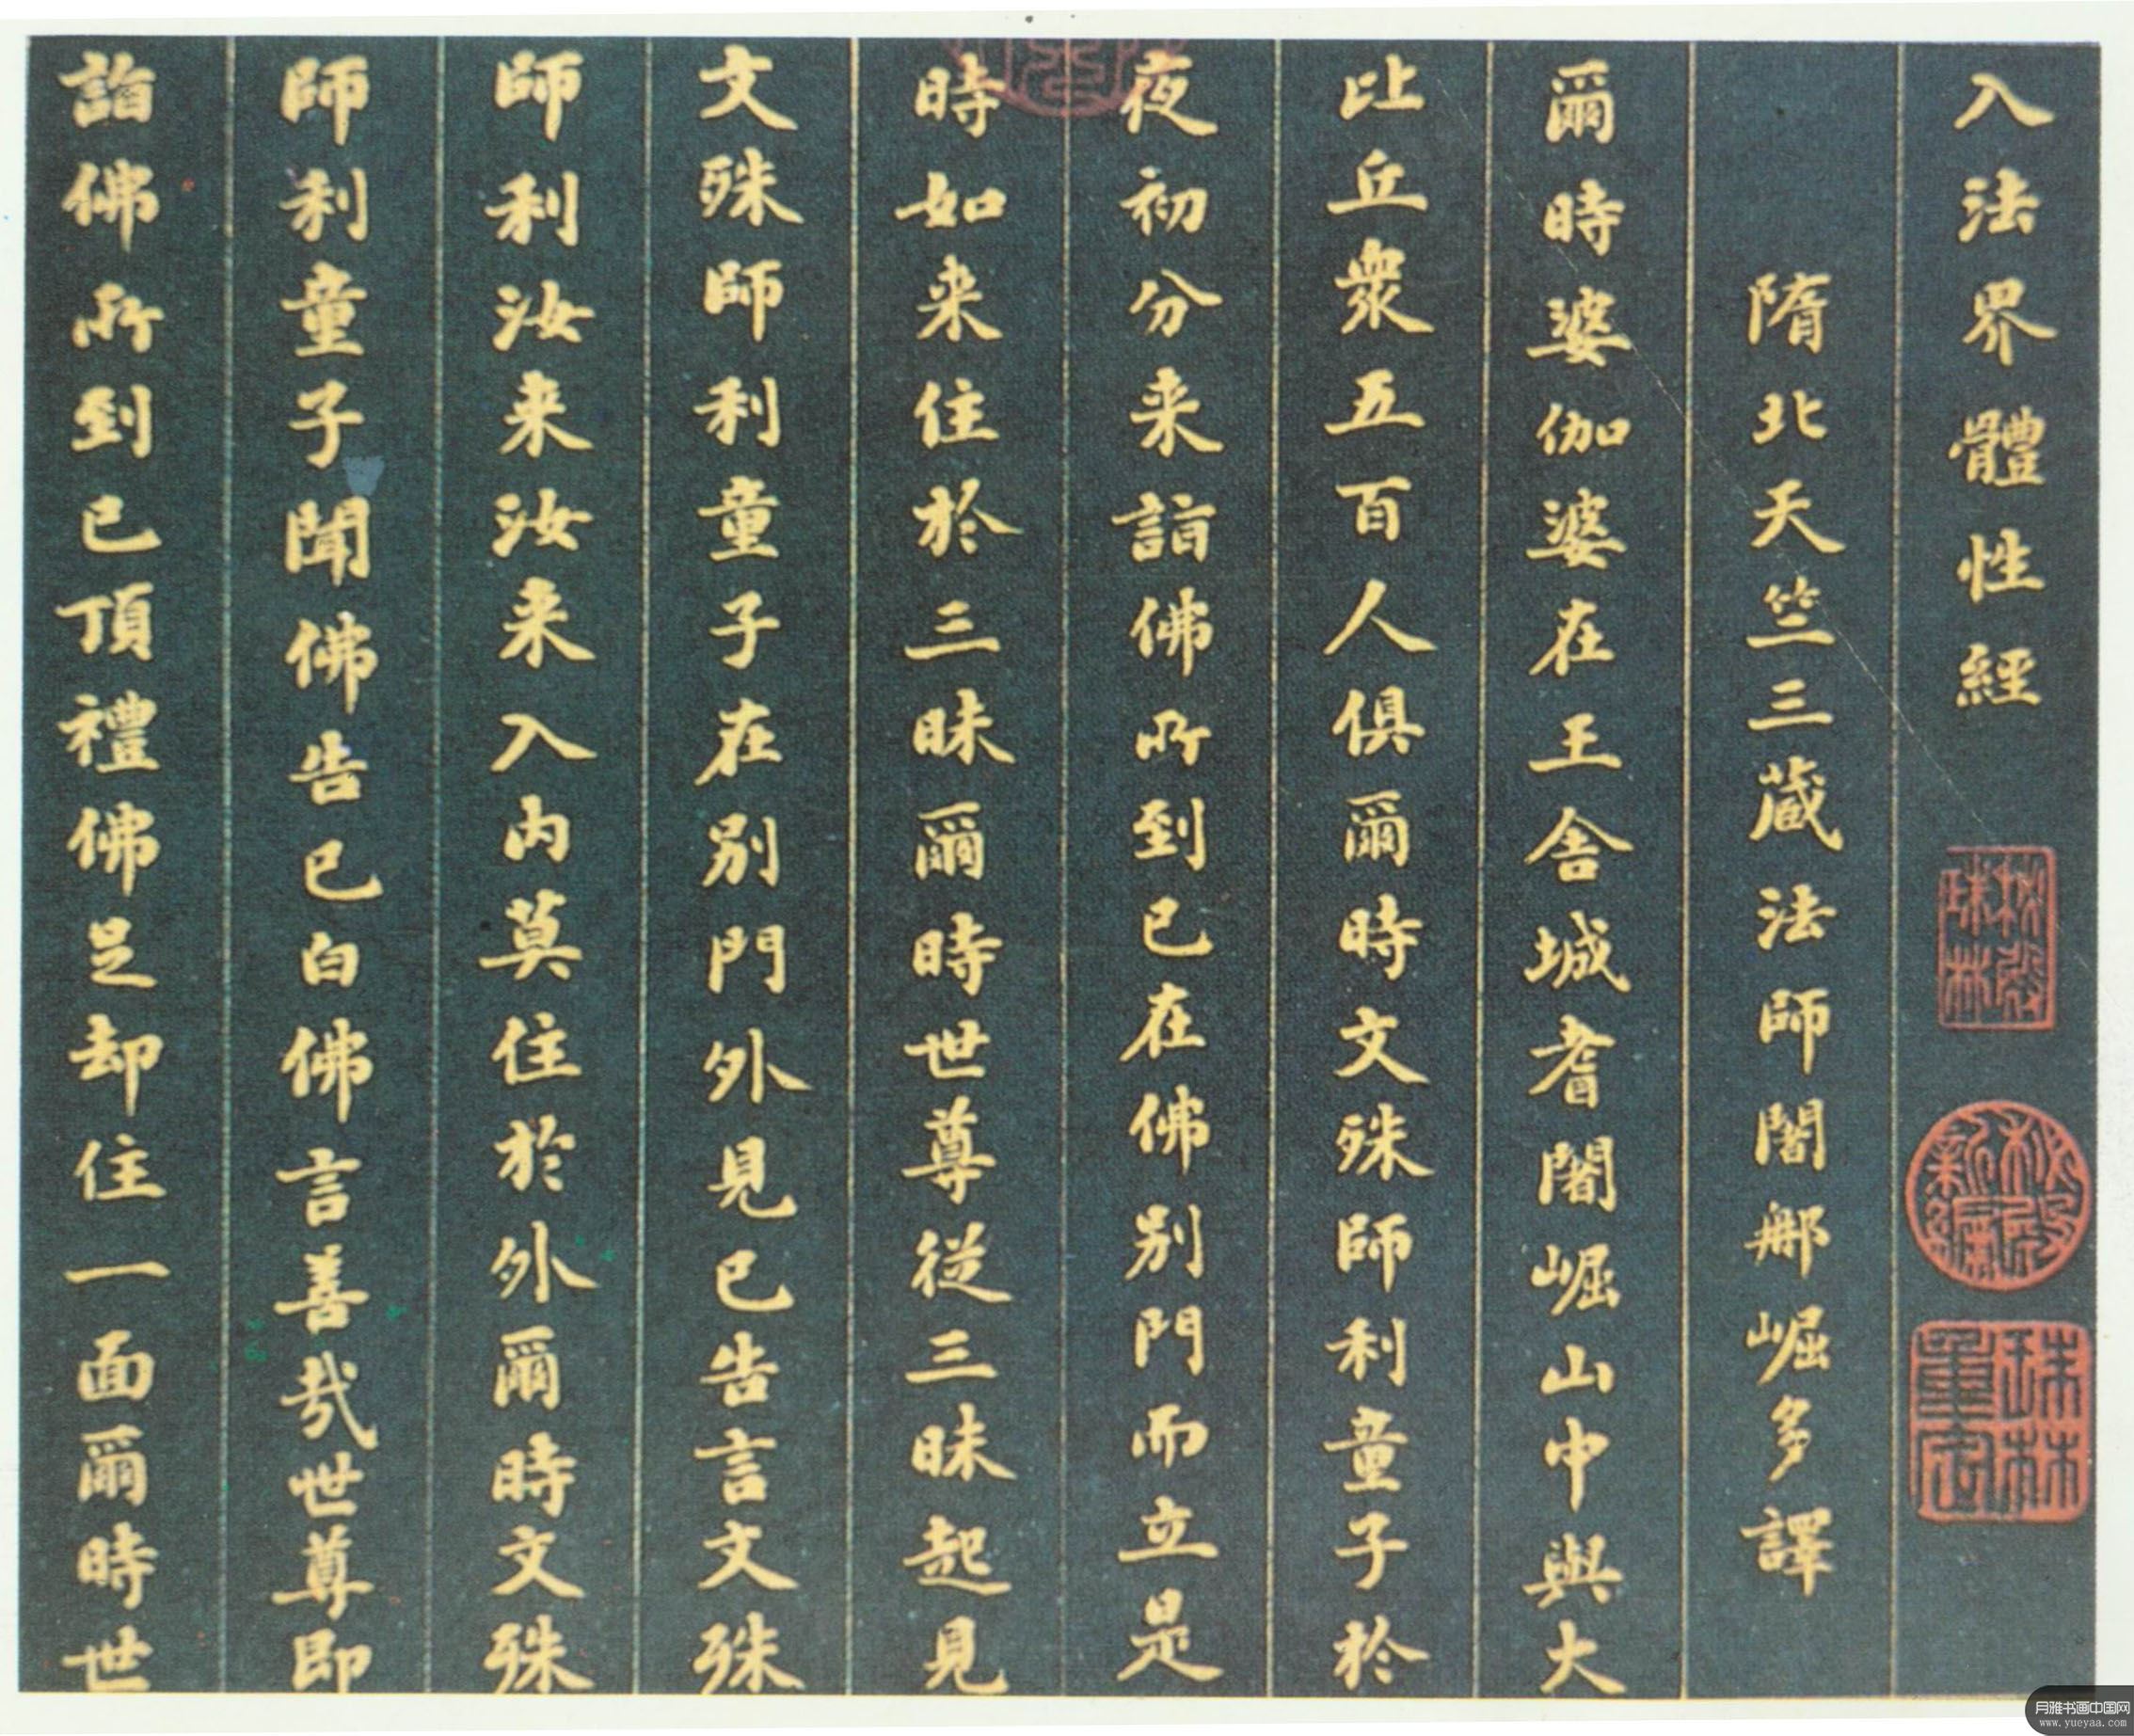 入法界體性經
隋北天竺三藏法師闍那崛多譯
爾時婆伽婆在王舍城耆闍崛山中與大
比丘衆五百人俱爾時文殊師利童子於
夜初分来詣佛所到已在佛別門而立是
時如来住於三昧爾時世尊從三昧起見
文殊師利童子在別門外見已告言文殊
師利汝来汝来入內莫住於外爾時文殊
師利童子聞佛告已白佛言善哉世尊即
詣佛所到已頂禮佛足却住一面爾時世
秘殿珠林
秘殿新編
珠林重定
月雅书画中国网
www.yueyaa.com